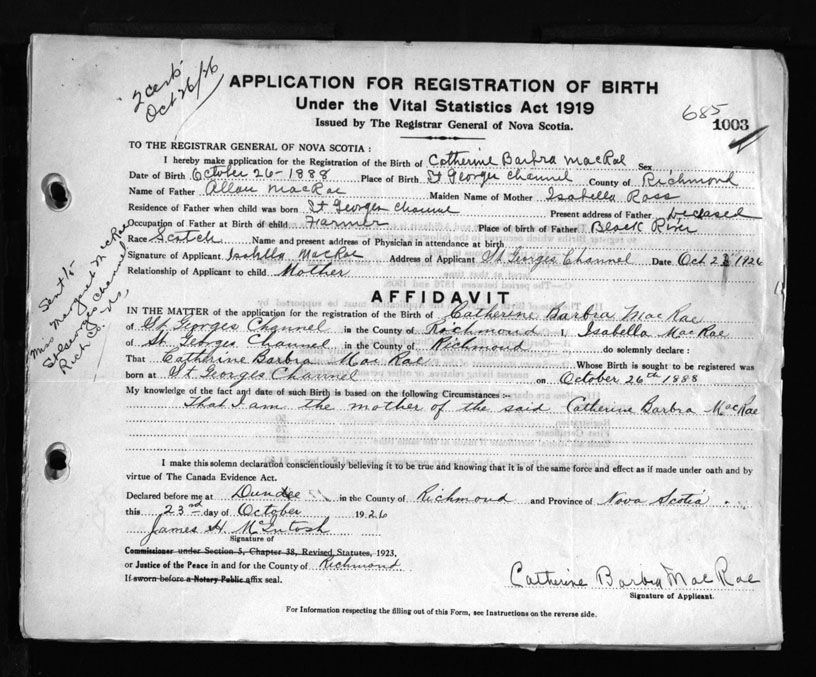 2 certs
Oct 26/26
APPLICATION FOR REGISTRATION OF BIRTH
Under the Vital Statistics Act 1919
Issued by The Registrar General of Nova Scotia.
685
1003
TO THE REGISTRAR GENERAL OF NOVA SCOTIA :
I hereby make application for the Registration of the Birth of Catherine Barbra MacRae Sex
Date of Birth October 26 - 1888 Place of Birth St Georges Channel County of Richmond
Name of Father Allan MacRae Maiden Name of Mother Isabella Ross
Residence of Father when child was born St Georges Channel Present address of Father Deceased
Occupation of Father at Birth of child Farmer Place of birth of Father Black River
Race Scotch Name and present address of Physician in attendance at birth
Signature of Applicant Isabella MacRae Address of Applicant St Georges Channel Date Oct 23 1926
Relationship of Applicant to child Mother
Sent to
Miss Margaret MacRae
St Georges Channel
Rich Co. NS,
AFFIDAVIT
IN THE MATTER of the application for the registration of the Birth of Catherine Barbra MacRae
of St Georges Channel in the County of Richmond I, Isabella MacRae
of St Georges Channel in the County of Richmond do solemnly declare :
That Catherine Barbra MacRae Whose Birth is sought to be registered was
born at St Georges Channel on October 26th 1888
My knowledge of the fact and date of such Birth is based on the following Circumstances :-
That I am the mother of the said Catherine Barbra MacRae
I make this solemn declaration conscientiously believing it to be true and knowing that it is of the same force and effect as if made under oath and by
virtue of The Canada Evidence Act.
Declared before me at Dundee in the County of Richmond and Province of Nova Scotia
this 23rd day of October 1926
James H. McIntosh
Signature of
Commissioner under Section 5, Chapter 38, Revised Statutes, 1923,
or Justice of the Peace in and for the County of Richmond
If sworn before a Notary Public affix seal.
Catherine Barbra MacRae
Signature of Applicant.
For Information respecting the filling out of this Form, see Instructions on the reverse side.